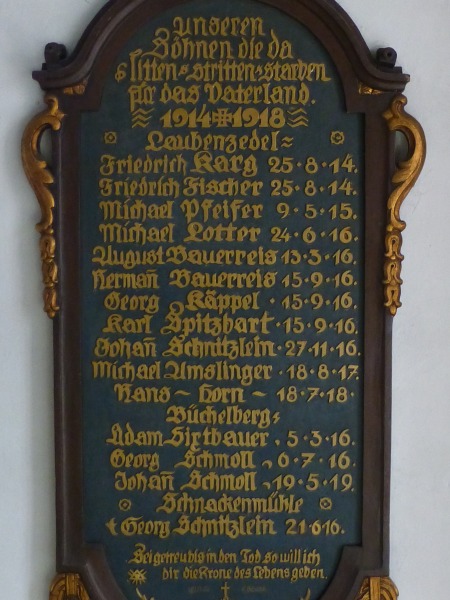 Unseren
Söhnen die da
litten = stritten = starben
für das Vaterland.
1914 # 1918
Laubenzedel =
Friedrich Karg 25 · 8 · 14.
Friedrich Fischer 25 · 8 · 14.
Michael Pfeifer 9 · 5 · 15.
Michael Lotter 24 · 6 · 16.
August Bauerreis 13 · 3 · 16.
Herman̄ Bauerreis 15 · 9 · 16.
Georg Käppel · 15 · 9 · 16.
Karl Spitzbart · 15 · 9 · 16.
Johan̄ Schnitzlein · 27 · 11 · 16.
Michael Amslinger · 18 · 8 · 17.
Hans ~ Horn ~ 18 · 7 · 18 ·
Büchelberg =
Adam Sixtbauer · 5 · 3 · 16.
Georg Schmoll ~ 6 · 7 · 16.
Johan̄ Schmoll ~ 19 · 5 · 19.
Schnackenmühle
Georg Schnitzlein 21 · 6 · 16.
Sei getreu bis in den Tod so will ich
dir die Krone des Lebens geben.